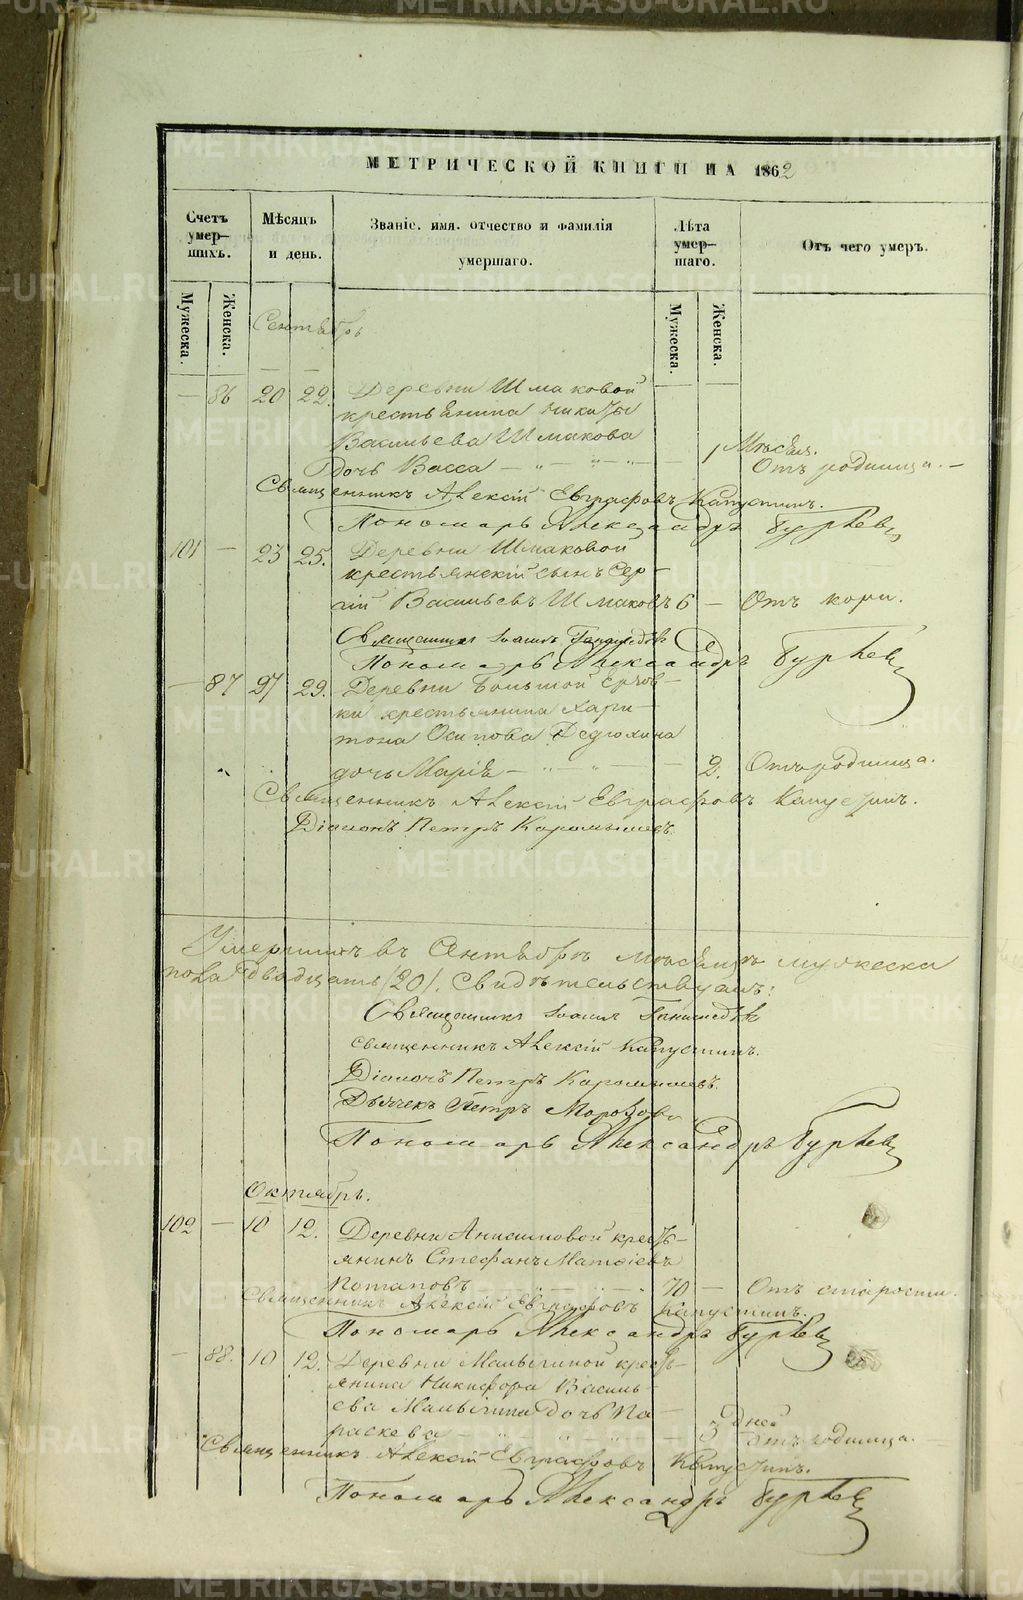 МЕТРИЧЕСКОЙ КНИГИ НА 1862
Счетъ умер-шихъ.
Мѣсяцъ и день.
Званіе, имя, отчество и фамилія умершаго.
Лѣта умер-шаго.
Отъ чего умеръ.
Мужеска. Женска.
Мужеска. Женска.
Сентябрь
— 86 20 22. Деревни Шмаковой
крестьянина Никиты
Васильева Шмакова
дочь Васса 1 Мѣсяц. Отъ родимца. —
Священникъ Алексій Евграфовъ Капустинъ.
Пономарь Александръ Гурьевъ
101 — 23 25. Деревни Шмаковой
крестьянскій сынъ Сер-
гій Васильевъ Шмаковъ 6 — Отъ кори.
Священникъ Іоаннъ
Пономарь Александръ Гурьевъ
— 87 27 29. Деревни Большой
ки крестьянина Хари-
тона Осипова Дедюхина
дочь Марія — 2. Отъ родимца.
Священникъ Алексій Евграфовъ Капустинъ.
Діаконъ Петръ Каромышевъ.
Умершихъ въ Сентябрѣ мѣсяцѣ мужеска
пола двадцать (20). Свидѣтельствуемъ:
Священникъ Іоаннъ
Священникъ Алексій Капустинъ.
Діаконъ Петръ Каромышевъ.
Дьячекъ Петръ Морозовъ
Пономарь Александръ Гурьевъ
Октябрь.
102 — 10 12. Деревни Анисимовой кресть-
янинъ Стефанъ Матѳіевъ
Потаповъ 70 — Отъ старости.
Священникъ Алексій Евграфовъ Капустинъ.
Пономарь Александръ Гурьевъ
— 88. 10 12. Деревни Мальгиной кресть-
янина Никифора Василь-
ева Мальгина дочь Па-
раскева — 3 дней Отъ родимца.
Священникъ Алексій Евграфовъ Капустинъ.
Пономарь Александръ Гурьевъ
METRIKI.GASO-URAL.RU